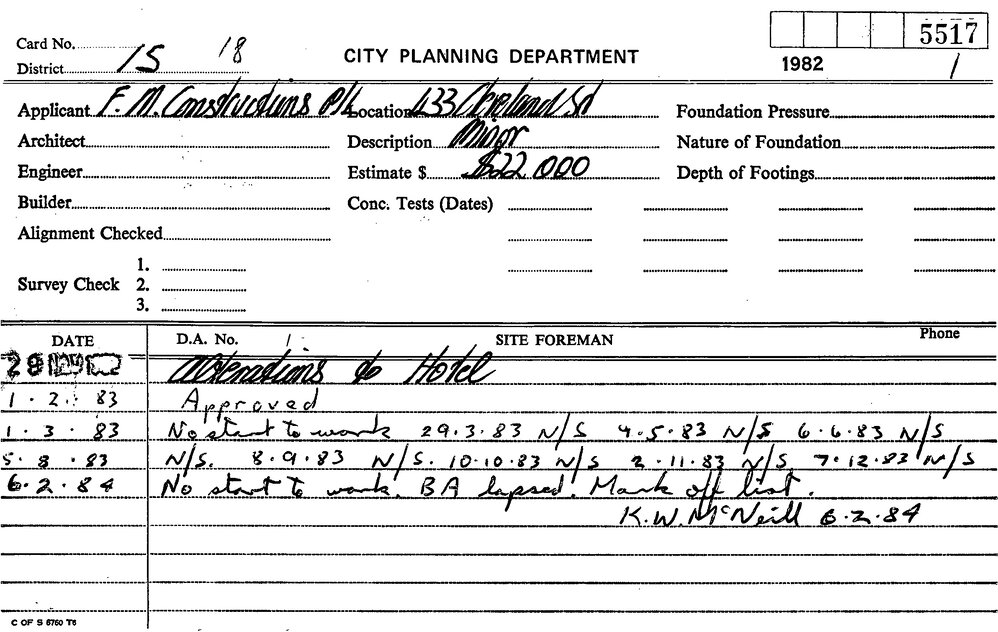 5517
Card No.
District 15 18
CITY PLANNING DEPARTMENT
1982 1
Applicant F. M. Constructions P/L Location 433 Cleveland St Foundation Pressure
Architect Description Minor Nature of Foundation
Engineer Estimate $ $22,000 Depth of Footings
Builder Conc. Tests (Dates)
Alignment Checked
Survey Check 1.
2.
3.
DATE D.A. No. SITE FOREMAN Phone
28 Alterations to Hotel
1.2.83 Approved
1.3.83 No start to work 29.3.83 N/S 4.5.83 N/S 6.6.83 N/S
5.8.83 N/S. 8.9.83 N/S. 10.10.83 N/S 2.11.83 N/S 7.12.83 N/S
6.2.84 No start to work. BA lapsed. Mark off list.
K.W. McNeill 6.2.84
C OF S 6760 T6